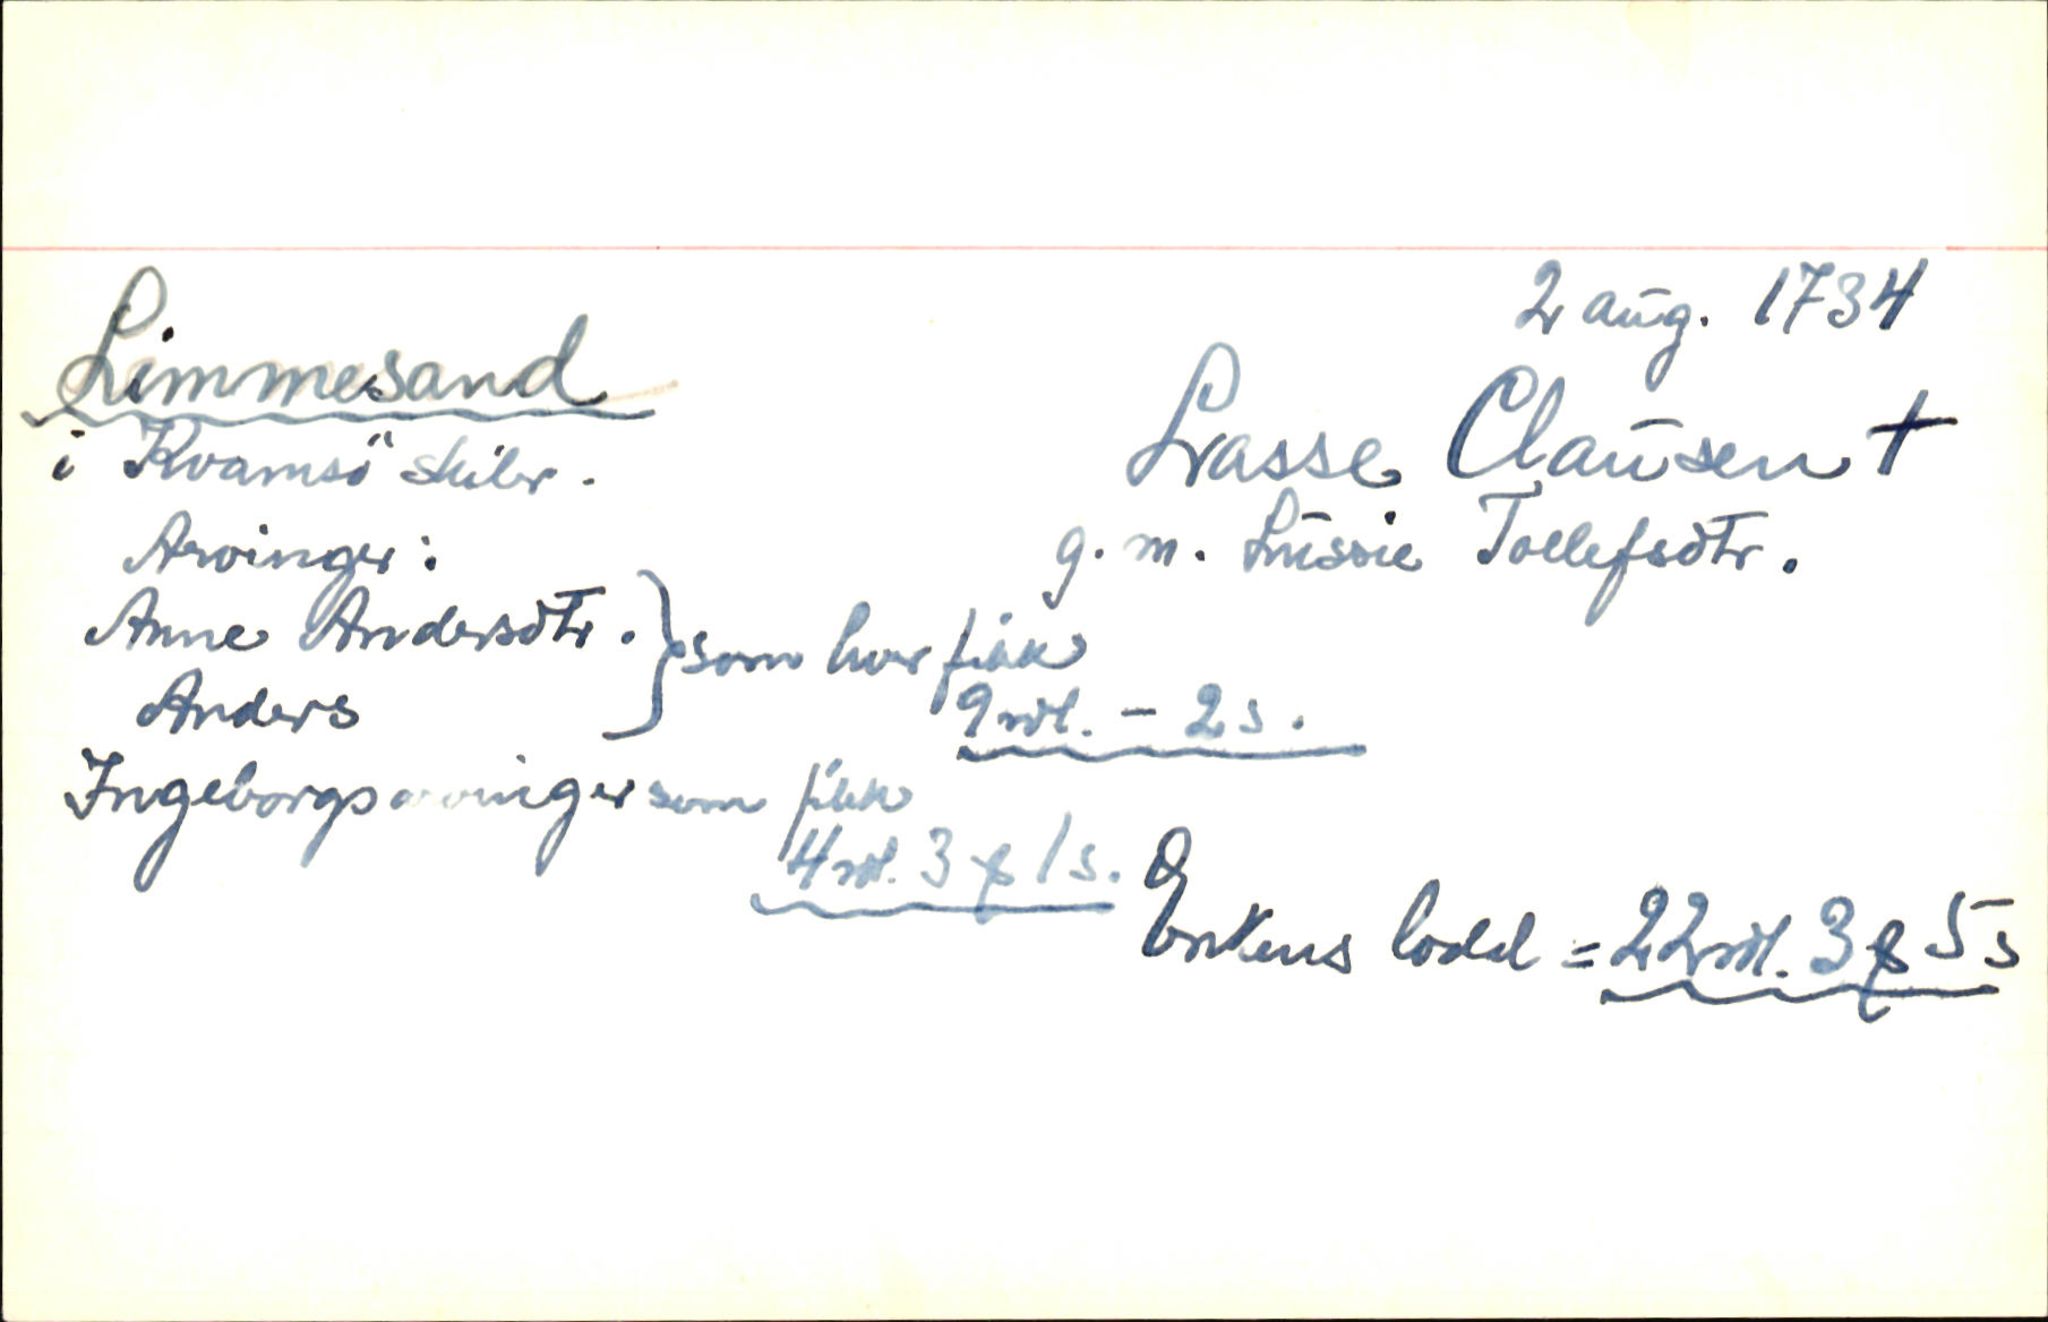 2 aug. 1734
Limmesand
i Kvamsö skibr.
Lasse Clausen †
g. m. Lussie Tollefsdtr.
Arvinger:
Anne Andersdtr.
Anders
} som hver fikk
9 rdl. - 2 s.
Ingeborgs arvinger som fikk
4 rdl. 3 ƥ 1 s.
Enkens lodd = 22 rdl. 3 ƥ 5 s